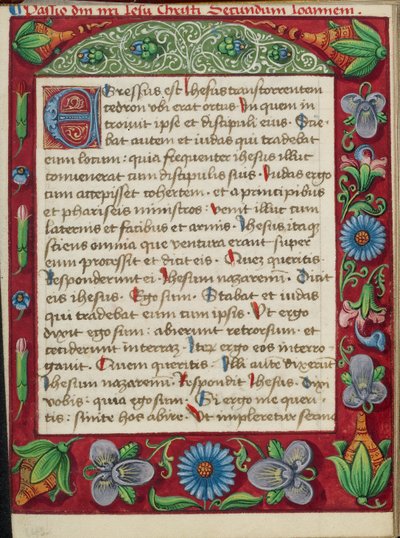 Passio dni nri Iesu Christi Secundum Ioannem.
Egressus est Ihesus trans torrentem
cedron vbi erat ortus In quem in
troiuit ipse et discipuli eius. Scie
bat autem et iudas qui tradebat
eum locum: quia frequenter ihesus illuc
conuenerat cum discipulis suis. Iudas ergo
cum accepisset cohortem. et a principibus
et phariseis ministros: venit illuc cum
laternis et facibus et armis. Ihesus itaq
sciens omnia que ventura erant super
eum processit et dicit eis. Quez queritis.
Responderunt ei. Ihesum nazarenū. Dicit
eis ihesus. Ego sum. Stabat et iudas
qui tradebat eum cum ipsis. Vt ergo
dixit ergo sum: abierunt retrorsum. et
ceciderunt in terraz. Iterz ergo eos interro
gauit. Quem queritis. Illi autē dixerūt
Ihesum nazarenū. Respondit Ihesus. Dixi
vobis: quia ego sum. Si ergo me queri
tis: sinite hos abire. Vt impleretur sermo